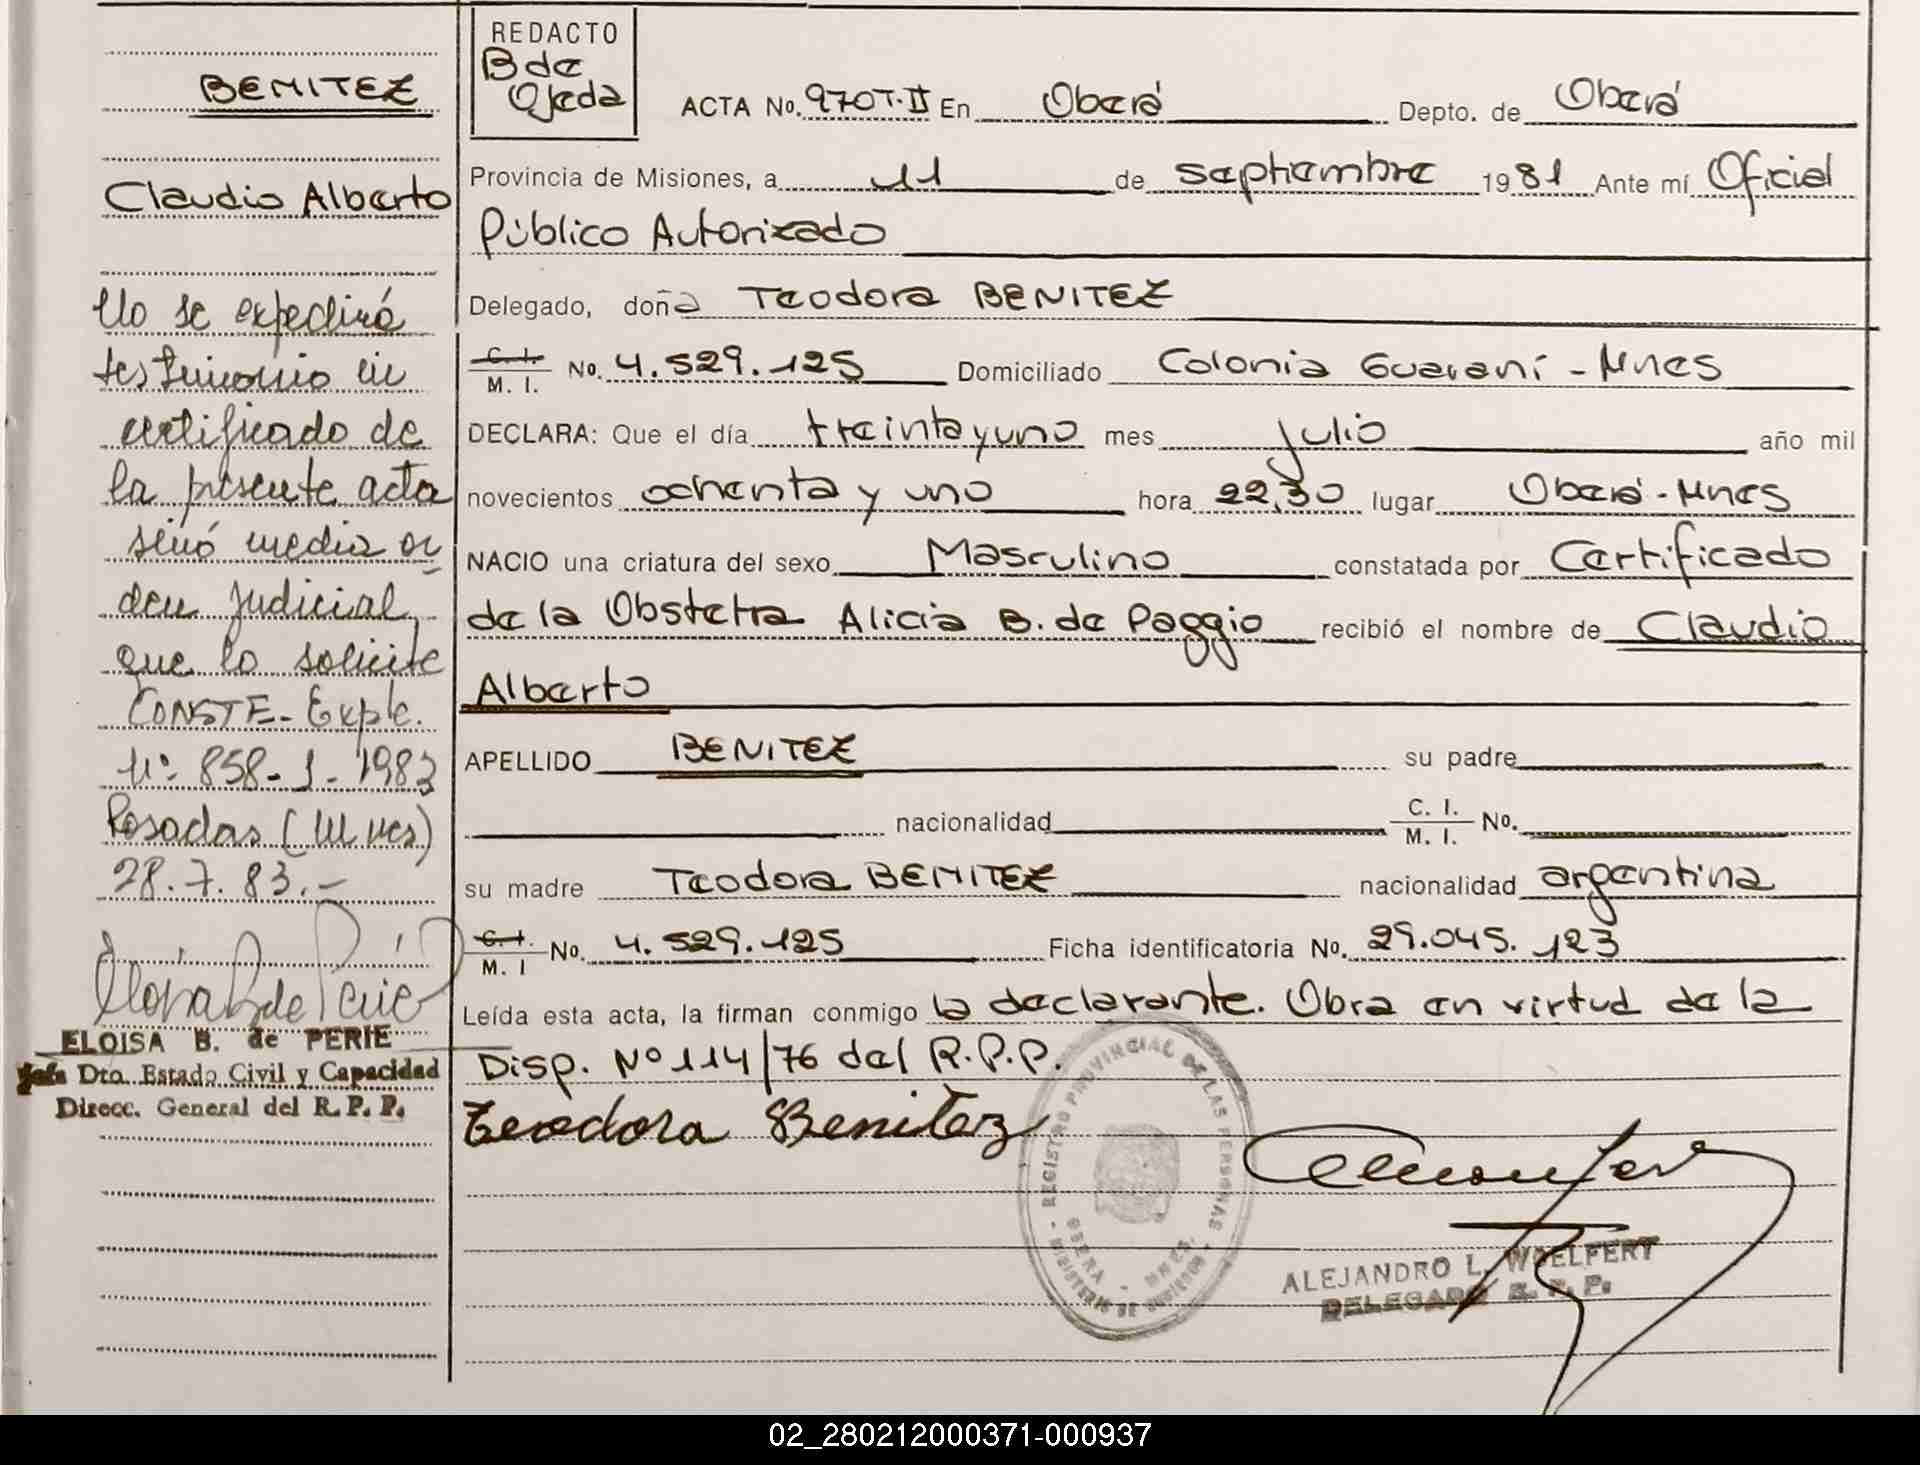 BENITEZ
Claudio Alberto
No se expedirá
testimonio ni
certificado de
la presente acta
sinó media or
den judicial
que lo solicite
CONSTE- Expte.
Nº 858-J-1983
Posadas (Mnes)
28.7.83.-
ELOISA B. de PERIE
Jefa Dto. Estado Civil y Capacidad
Direcc. General del R. P. P.
REDACTO
B de
Ojeda
ACTA No. 970T.II En Oberá Depto. de Oberá
Provincia de Misiones, a 11 de septiembre 1981 Ante mí Oficial
Público Autorizado
Delegado, doña Teodora BENITEZ
C. I. / M. I. No. 4.529.125 Domiciliado Colonia Guaraní - Mnes
DECLARA: Que el día treinta y uno mes julio año mil
novecientos ochenta y uno hora 22,30 lugar Oberá - Mnes
NACIO una criatura del sexo Masculino constatada por Certificado
de la Obstetra Alicia B. de Poggio recibió el nombre de Claudio
Alberto
APELLIDO BENITEZ su padre
nacionalidad C. I. / M. I. No.
su madre Teodora BENITEZ nacionalidad argentina
C. I. / M. I No. 4.529.125 Ficha identificatoria No. 29.045.123
Leída esta acta, la firman conmigo la declarante. Obra en virtud de la
Disp. Nº 114/76 del R.P.P.
Teodora Benitez
REGISTRO PROVINCIAL DE LAS PERSONAS
OBERA - MNES.
MINISTERIO DE GOBIERNO
ALEJANDRO L. WOELFERT
DELEGADO R. P. P.
02_280212000371-000937